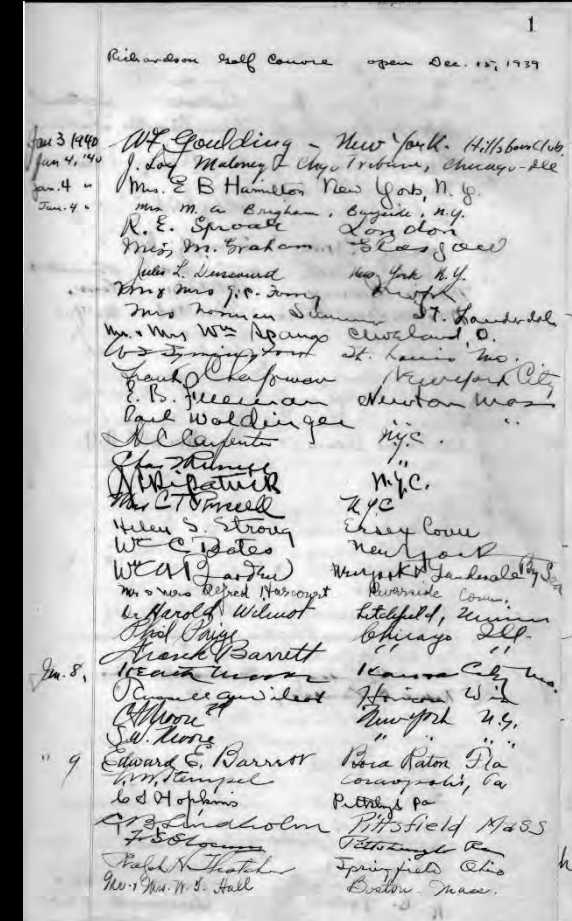 1
Richardson Golf Course open Dec. 15, 1939
Jan 3 1940 WF Goulding - New York - Hillsboro Club.
Jan 4, '40 J. Maloney Chgo Tribune, Chicago-Ill
Jan. 4 " Mrs. E B Hamilton New York, N. Y.
Jan. 4 " Mrs. M. A. Brigham, Bayside, N.Y.
R. E. Sproat London
Miss M. Graham Glasgow
Jules L. New York N.Y.
Mrs J. P.
Mrs Norman Ft. Lauderdale
Mr. & Mrs Wm Spang Cleveland, O.
Symington St. Louis Mo.
Frank Chapman New York City
E. B. Newton Mass
Paul Waldinger "
A C Carpenter N.Y.C.
Chas "
Kilpatrick N.Y.C.
Mrs C T Purcell N.Y.C
Helen S. Strong Essex Conn
Wm C Bates New York
Wm A New York & Lauderdale By Sea
Mr & Mrs Alfred Harcourt Riverside Conn.
Dr Harold Wilmot Litchfield, Minn
Phil Paige Chicago Ill.
Frank Barrett " "
Jan. 8, Keath Moore Kansas City Mo.
Wis
C Moore New York N.Y.
S.W. Moore " " "
" 9 Edward E. Barrior Boca Raton Fla
Stempel Coraopolis, Pa
C S Hopkins Pittsbgh Pa
C B Lindholm Pittsfield Mass
Pittsburgh Pa
Ralph H. Thatcher Springfield Ohio
Mr. & Mrs. W. Hall Boston Mass.